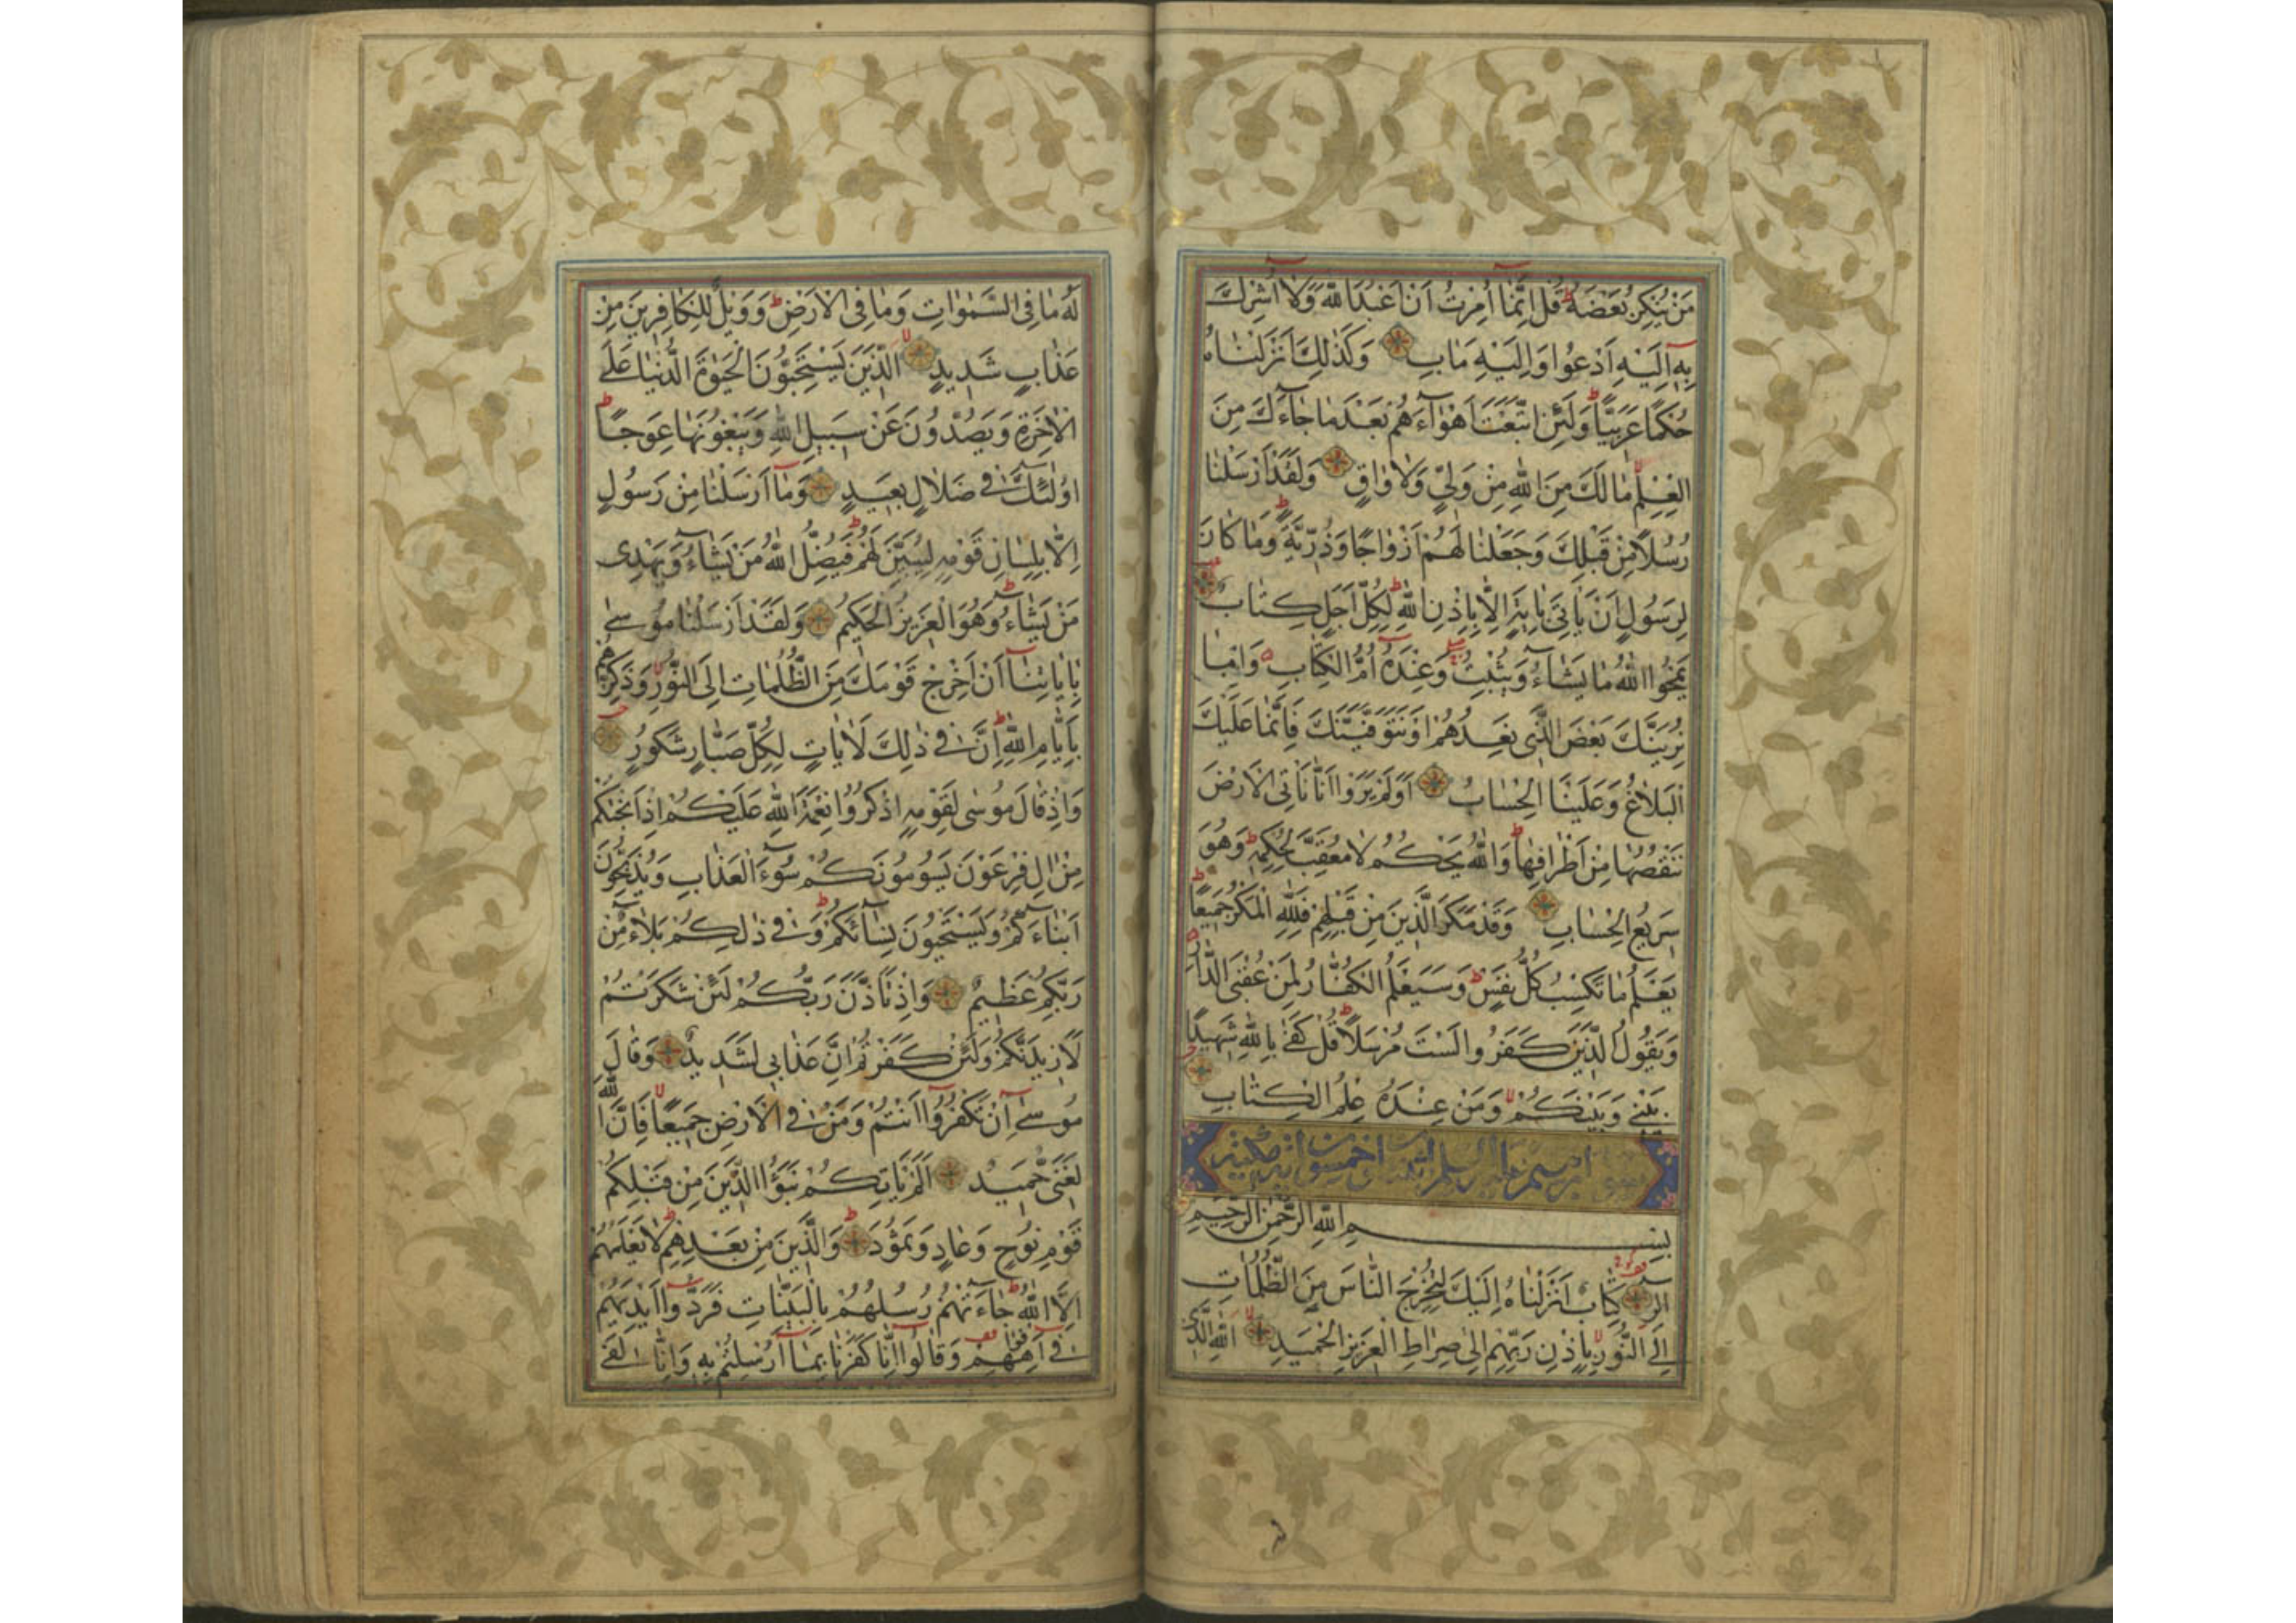 مَنْ يُنْكِرُ بَعْضَهُ قُلْ اِنَّمَا اُمِرْتُ اَنْ اَعْبُدَ اللّٰهَ وَلَا اُشْرِكَ
بِهٖ اِلَيْهِ اَدْعُوا وَاِلَيْهِ مَاٰبِ وَكَذٰلِكَ اَنْزَلْنَاهُ
حُكْمًا عَرَبِيًّا وَلَئِنِ اتَّبَعْتَ اَهْوَاءَهُمْ بَعْدَ مَا جَاءَكَ مِنَ
الْعِلْمِ مَا لَكَ مِنَ اللّٰهِ مِنْ وَلِيٍّ وَلَا وَاقٍ وَلَقَدْ اَرْسَلْنَا
رُسُلًا مِنْ قَبْلِكَ وَجَعَلْنَا لَهُمْ اَزْوَاجًا وَذُرِّيَّةً وَمَا كَانَ
لِرَسُولٍ اَنْ يَأْتِيَ بِاٰيَةٍ اِلَّا بِاِذْنِ اللّٰهِ لِكُلِّ اَجَلٍ كِتَابٌ
يَمْحُوا اللّٰهُ مَا يَشَاءُ وَيُثْبِتُ وَعِنْدَهُ اُمُّ الْكِتَابِ وَاِمَّا
نُرِيَنَّكَ بَعْضَ الَّذِي نَعِدُهُمْ اَوْ نَتَوَفَّيَنَّكَ فَاِنَّمَا عَلَيْكَ
الْبَلَاغُ وَعَلَيْنَا الْحِسَابُ اَوَلَمْ يَرَوْا اَنَّا نَأْتِي الْاَرْضَ
نَنْقُصُهَا مِنْ اَطْرَافِهَا وَاللّٰهُ يَحْكُمُ لَا مُعَقِّبَ لِحُكْمِهِ وَهُوَ
سَرِيعُ الْحِسَابِ وَقَدْ مَكَرَ الَّذِينَ مِنْ قَبْلِهِمْ فَلِلّٰهِ الْمَكْرُ جَمِيعًا
يَعْلَمُ مَا تَكْسِبُ كُلُّ نَفْسٍ وَسَيَعْلَمُ الْكُفَّارُ لِمَنْ عُقْبَى الدَّارِ
وَيَقُولُ الَّذِينَ كَفَرُوا لَسْتَ مُرْسَلًا قُلْ كَفٰى بِاللّٰهِ شَهِيدًا
بَيْنِي وَبَيْنَكُمْ وَمَنْ عِنْدَهُ عِلْمُ الْكِتَابِ
بِسْمِ اللّٰهِ الرَّحْمٰنِ الرَّحِيمِ
الٓرٰ كِتَابٌ اَنْزَلْنَاهُ اِلَيْكَ لِتُخْرِجَ النَّاسَ مِنَ الظُّلُمَاتِ
اِلَى النُّورِ بِاِذْنِ رَبِّهِمْ اِلٰى صِرَاطِ الْعَزِيزِ الْحَمِيدِ اَللّٰهِ الَّذِي
لَهُ مَا فِي السَّمٰوَاتِ وَمَا فِي الْاَرْضِ وَوَيْلٌ لِلْكَافِرِينَ مِنْ
عَذَابٍ شَدِيدٍ الَّذِينَ يَسْتَحِبُّونَ الْحَيٰوةَ الدُّنْيَا عَلَى
الْاٰخِرَةِ وَيَصُدُّونَ عَنْ سَبِيلِ اللّٰهِ وَيَبْغُونَهَا عِوَجًا
اُولٰئِكَ فِي ضَلَالٍ بَعِيدٍ وَمَا اَرْسَلْنَا مِنْ رَسُولٍ
اِلَّا بِلِسَانِ قَوْمِهِ لِيُبَيِّنَ لَهُمْ فَيُضِلُّ اللّٰهُ مَنْ يَشَاءُ وَيَهْدِي
مَنْ يَشَاءُ وَهُوَ الْعَزِيزُ الْحَكِيمُ وَلَقَدْ اَرْسَلْنَا مُوسٰى
بِاٰيَاتِنَا اَنْ اَخْرِجْ قَوْمَكَ مِنَ الظُّلُمَاتِ اِلَى النُّورِ وَذَكِّرْهُمْ
بِاَيَّامِ اللّٰهِ اِنَّ فِي ذٰلِكَ لَاٰيَاتٍ لِكُلِّ صَبَّارٍ شَكُورٍ
وَاِذْ قَالَ مُوسٰى لِقَوْمِهِ اذْكُرُوا نِعْمَةَ اللّٰهِ عَلَيْكُمْ اِذْ اَنْجٰكُمْ
مِنْ اٰلِ فِرْعَوْنَ يَسُومُونَكُمْ سُوءَ الْعَذَابِ وَيُذَبِّحُونَ
اَبْنَاءَكُمْ وَيَسْتَحْيُونَ نِسَاءَكُمْ وَفِي ذٰلِكُمْ بَلَاءٌ مِنْ
رَبِّكُمْ عَظِيمٌ وَاِذْ تَاَذَّنَ رَبُّكُمْ لَئِنْ شَكَرْتُمْ
لَاَزِيدَنَّكُمْ وَلَئِنْ كَفَرْتُمْ اِنَّ عَذَابِي لَشَدِيدٌ وَقَالَ
مُوسٰى اِنْ تَكْفُرُوا اَنْتُمْ وَمَنْ فِي الْاَرْضِ جَمِيعًا فَاِنَّ اللّٰهَ
لَغَنِيٌّ حَمِيدٌ اَلَمْ يَأْتِكُمْ نَبَؤُا الَّذِينَ مِنْ قَبْلِكُمْ
قَوْمِ نُوحٍ وَعَادٍ وَثَمُودَ وَالَّذِينَ مِنْ بَعْدِهِمْ لَا يَعْلَمُهُمْ
اِلَّا اللّٰهُ جَاءَتْهُمْ رُسُلُهُمْ بِالْبَيِّنَاتِ فَرَدُّوا اَيْدِيَهُمْ
فِي اَفْوَاهِهِمْ وَقَالُوا اِنَّا كَفَرْنَا بِمَا اُرْسِلْتُمْ بِهِ وَاِنَّا لَفِي